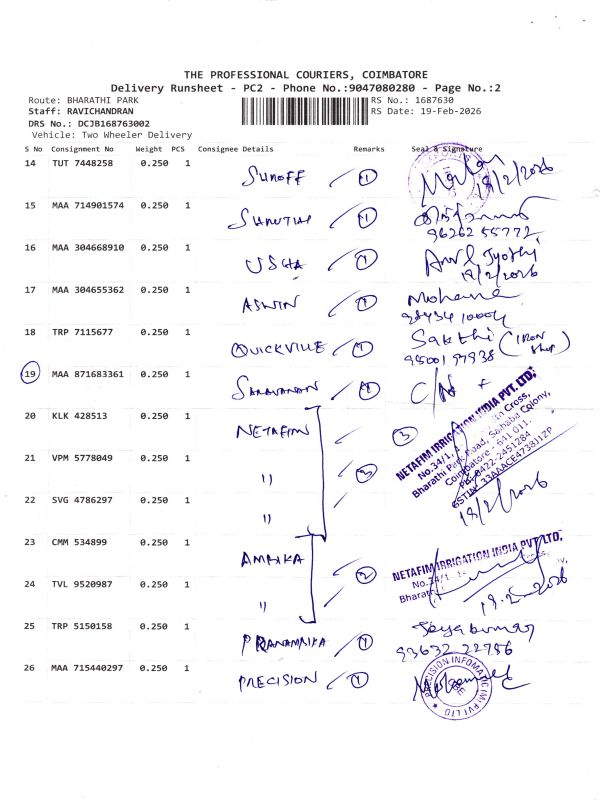 THE PROFESSIONAL COURIERS, COIMBATORE
Delivery Runsheet - PC2 - Phone No.:9047080280 - Page No.:2
Route: BHARATHI PARK RS No.: 1687630
Staff: RAVICHANDRAN RS Date: 19-Feb-2026
DRS No.: DCJB168763002
Vehicle: Two Wheeler Delivery
S No Consignment No Weight PCS Consignee Details Remarks Seal & Signature
14 TUT 7448258 0.250 1 SUNOFF 1 19/2/2026
15 MAA 714901574 0.250 1 1
96262 55772
16 MAA 304668910 0.250 1 USHA 1 Jyothi
19/2/2026
17 MAA 304655362 0.250 1 ASWIN 1 Mohana
98434 10004
18 TRP 7115677 0.250 1 QUICKVILLE 1 Sakthi (IRON Shop)
95001 97938
19 MAA 871683361 0.250 1 SARAVANAN 1 C/N
20 KLK 428513 0.250 1 NETAFIM 3
NETAFIM IRRIGATION INDIA PVT. LTD.
No.34/1, Cross,
Bharathi Park Road, Saibaba Colony,
Coimbatore - 641 011.
Ph: 0422-2451284
GSTIN: 33AAACE4738J1ZP
21 VPM 5778049 0.250 1 " 3
22 SVG 4786297 0.250 1 " 19/2/2026
23 CMM 534899 0.250 1 AMRIKA
NETAFIM IRRIGATION INDIA PVT LTD.
No.34/1
2
24 TVL 9520987 0.250 1 " 19.2.2026
25 TRP 5150158 0.250 1 PRANAMRIKA 1 Jeyakumar
93632 22756
26 MAA 715440297 0.250 1 PRECISION 1
PRECISION INFOMATIC (M) PVT LTD